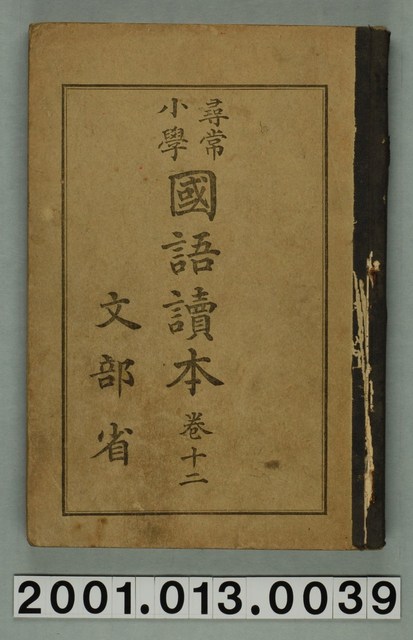 尋常
小學
國語讀本 卷十二
文部省
2001.013.0039